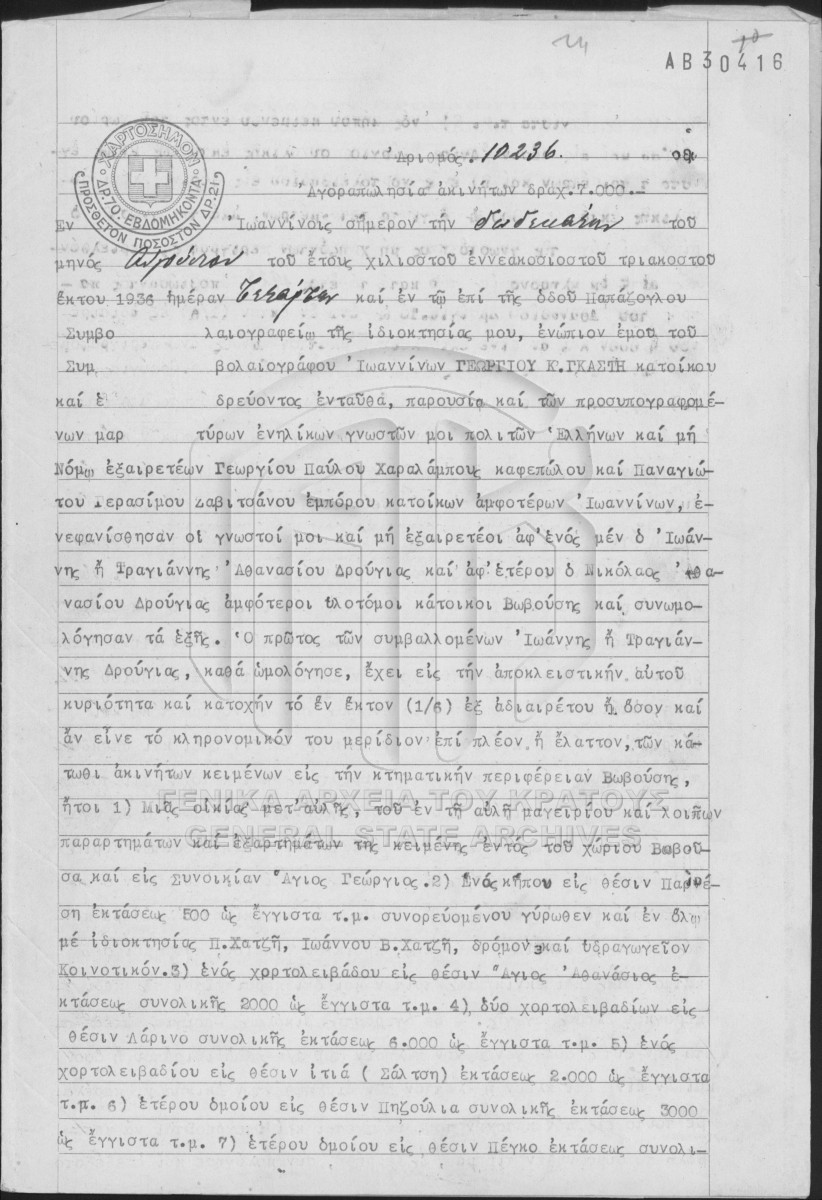 ΑΒ30416
ΧΑΡΤΟΣΗΜΟΝ
ΔΡ.70. ΕΒΔΟΜΗΚΟΝΤΑ
ΠΡΟΣΘΕΤΟΝ ΠΟΣΟΣΤΟΝ ΔΡ.21.
Ἀριθμός. 10236.
Ἀγοραπωλησία ἀκινήτων δραχ.7.000.—
Ἐν Ἰωαννίνοις σήμερον τήν δωδεκάτην τοῦ
μηνός Αὐγούστου τοῦ ἔτους χιλιοστοῦ ἐννεακοσιοστοῦ τριακοστοῦ
ἕκτου 1936 ἡμέραν Τετάρτην καί ἐν τῷ ἐπί τῆς ὁδοῦ Παπάζογλου
Συμβο λαιογραφείῳ τῆς ἰδιοκτησίας μου, ἐνώπιον ἐμοῦ τοῦ
Συμ βολαιογράφου Ἰωαννίνων ΓΕΩΡΓΙΟΥ Κ. ΓΚΑΣΤΗ κατοίκου
καί ἑ δρεύοντος ἐνταῦθα, παρουσίᾳ καί τῶν προσυπογραφομέ-
νων μαρ τύρων ἐνηλίκων γνωστῶν μοι πολιτῶν Ἑλλήνων καί μή
Νόμῳ ἐξαιρετέων Γεωργίου Παύλου Χαραλάμπους καφεπώλου καί Παναγιώ-
του Γερασίμου Ζαβιτσάνου ἐμπόρου κατοίκων ἀμφοτέρων Ἰωαννίνων, ἐ-
νεφανίσθησαν οἱ γνωστοί μοι καί μή ἐξαιρετέοι ἀφ' ἑνός μέν ὁ Ἰωάν-
νης ἤ Τραγιάννης Ἀθανασίου Δρούγιας καί ἀφ' ἑτέρου ὁ Νικόλαος Ἀθα-
νασίου Δρούγιας ἀμφότεροι ὑλοτόμοι κάτοικοι Βωβούσης καί συνωμο-
λόγησαν τά ἑξῆς. Ὁ πρῶτος τῶν συμβαλλομένων Ἰωάννης ἤ Τραγιάν-
νης Δρούγιας, καθά ὡμολόγησε, ἔχει εἰς τήν ἀποκλειστικήν αὐτοῦ
κυριότητα καί κατοχήν τό ἕν ἕκτον (1/6) ἐξ ἀδιαιρέτου ἤ ὅσον καί
ἄν εἶνε τό κληρονομικόν του μερίδιον ἐπί πλέον ἤ ἔλαττον, τῶν κά-
τωθι ἀκινήτων κειμένων εἰς τήν κτηματικήν περιφέρειαν Βωβούσης,
ἤτοι 1) Μιᾶς οἰκίας μετ' αὐλῆς, τοῦ ἐν τῇ αὐλῇ μαγειρίου καί λοιπων
ΓΕΝΙΚΑ ΑΡΧΕΙΑ ΤΟΥ ΚΡΑΤΟΥΣ
παραρτημάτων καί ἐξαρτημάτων τῆς κειμένης ἐντός τοῦ χωρίου Βωβοῦ-
GENERAL STATE ARCHIVES
σα καί εἰς Συνοικίαν Ἅγιος Γεώργιος. 2) Ἑνός κήπου εἰς θέσιν
ση ἐκτάσεως 500 ὡς ἔγγιστα τ.μ. συνορευομένου γύρωθεν καί ἐν ὅλῳ
μέ ἰδιοκτησίας Π.Χατζῆ, Ἰωάννου Β.Χατζῆ, δρόμον καί ὑδραγωγεῖον
Κοινοτικόν. 3) ἑνός χορτολειβάδου εἰς θέσιν Ἅγιος Ἀθανάσιος ἐ-
κτάσεως συνολικῆς 2000 ὡς ἔγγιστα τ.μ. 4) δύο χορτολειβαδίων εἰς
θέσιν Λάρινο συνολικῆς ἐκτάσεως 6.000 ὡς ἔγγιστα τ.μ. 5) ἑνός
χορτολειβαδίου εἰς θέσιν ἰτιά ( Σάλτση) ἐκτάσεως 2.000 ὡς ἔγγιστα
τ.μ. 6) ἑτέρου ὁμοίου εἰς θέσιν Πηζούλια συνολικῆς ἐκτάσεως 3000
ὡς ἔγγιστα τ.μ. 7) ἑτέρου ὁμοίου εἰς θέσιν Πέγκο ἐκτάσεως συνολι-